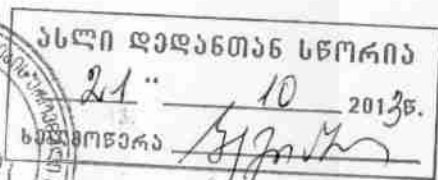 ასლი დედანთან სწორია
21 " 10 2013წ.
ხელმოწერა